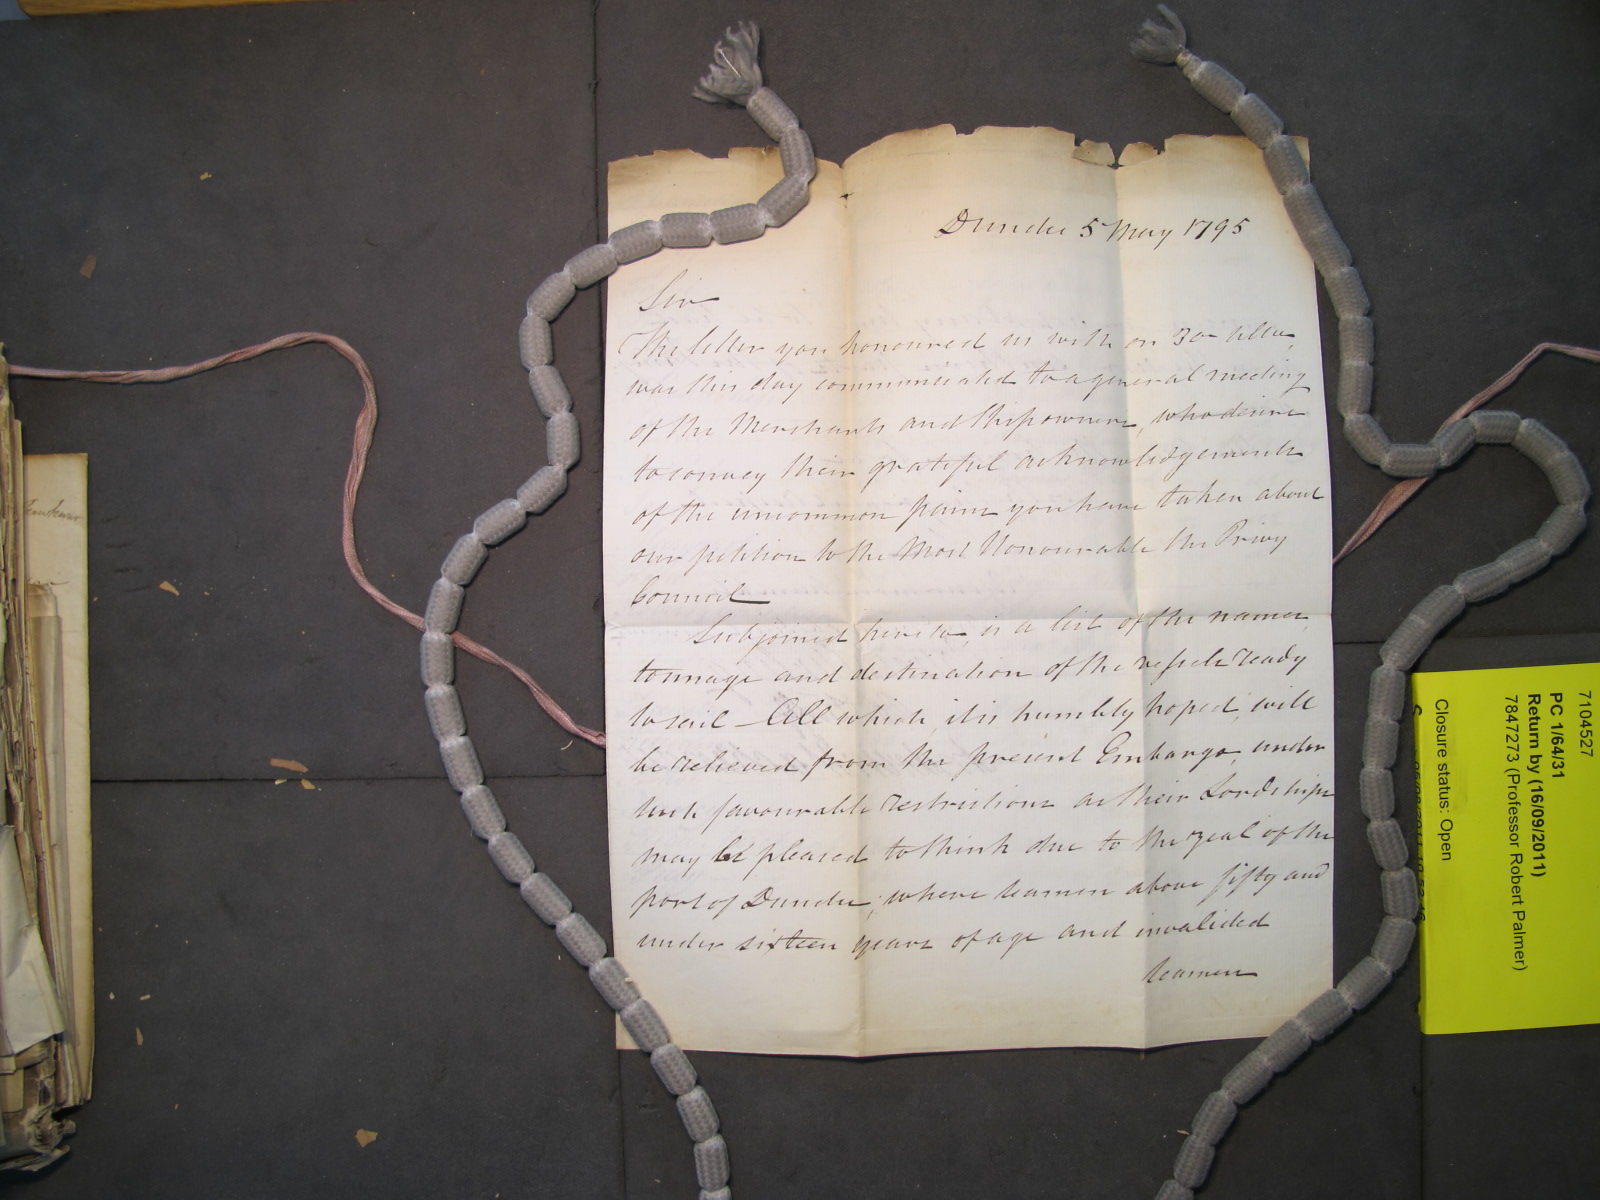 Dundee 5 May 1795
Sir
The letter you honoured us with on 30 ulto,
was this day communicated to a general meeting
of the Merchants and Shipowners, who desire
to convey their grateful acknowledgements
of the uncommon pains you have taken about
our petition to the Most Honourable the Privy
Council
Subjoined hereto, is a list of the names,
tonnage and destination of the vessels ready
to sail – All which, it is humbly hoped, will
be relieved from the present Embargo, under
such favourable restrictions as their Lordships
may be pleased to think due to the zeal of the
port of Dundee; where seamen above fifty and
under sixteen years of age and invalided
seamen
7104527
PC 1/64/31
Return by (16/09/2011)
7847273 (Professor Robert Palmer)
Closure status: Open